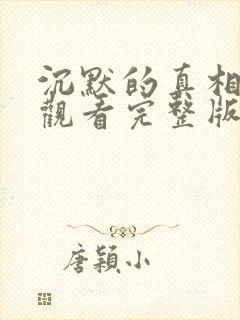 沉默的真相
觀看完整版
唐穎小